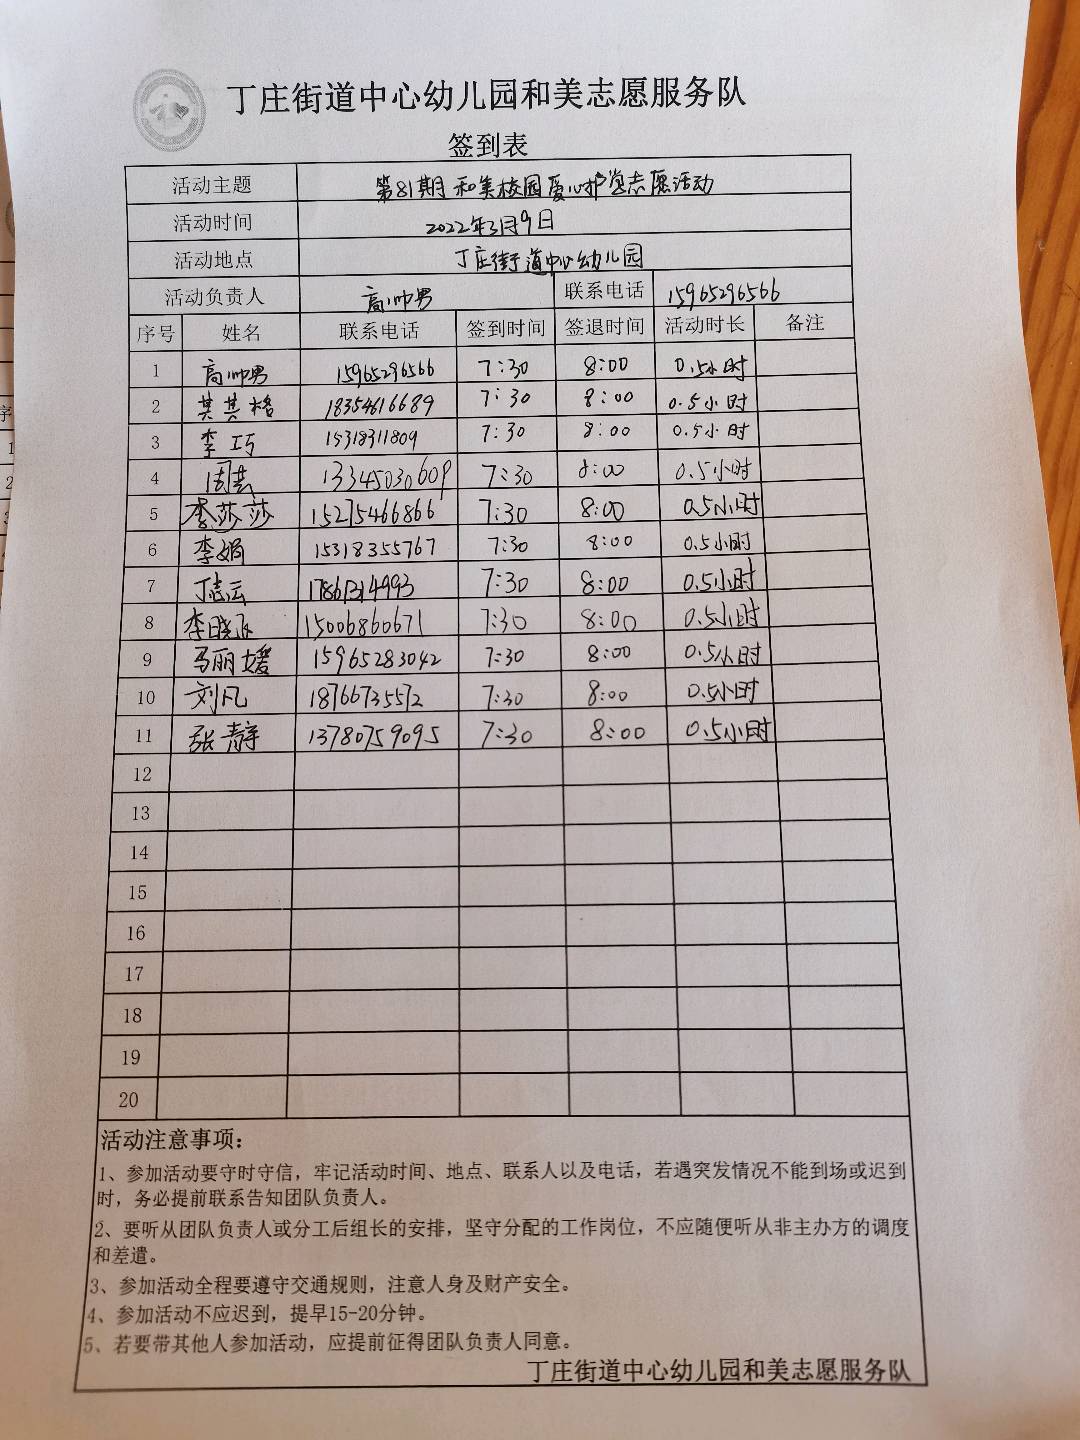 丁庄街道中心幼儿园和美志愿服务队
签到表
活动主题 第81期和美校园爱心护学志愿活动
活动时间 2022年3月9日
活动地点 丁庄街道中心幼儿园
活动负责人 高帅男 联系电话 15965296566
序号 姓名 联系电话 签到时间 签退时间 活动时长 备注
1 高帅男 15965296566 7:30 8:00 0.5小时
2 其其格 18354616689 7:30 8:00 0.5小时
3 李巧 15318311809 7:30 8:00 0.5小时
4 7:30 8:00 0.5小时
5 李莎莎 15275466866 7:30 8:00 0.5小时
6 李娟 15318355767 7:30 8:00 0.5小时
7 丁志云 17861314993 7:30 8:00 0.5小时
8 15006860671 7:30 8:00 0.5小时
9 马丽媛 15965283042 7:30 8:00 0.5小时
10 刘凡 18766735572 7:30 8:00 0.5小时
11 张静 13780759095 7:30 8:00 0.5小时
12
13
14
15
16
17
18
19
20
活动注意事项：
1、参加活动要守时守信，牢记活动时间、地点、联系人以及电话，若遇突发情况不能到场或迟到
时，务必提前联系告知团队负责人。
2、要听从团队负责人或分工后组长的安排，坚守分配的工作岗位，不应随便听从非主办方的调度
和差遣。
3、参加活动全程要遵守交通规则，注意人身及财产安全。
4、参加活动不应迟到，提早15-20分钟。
5、若要带其他人参加活动，应提前征得团队负责人同意。
丁庄街道中心幼儿园和美志愿服务队